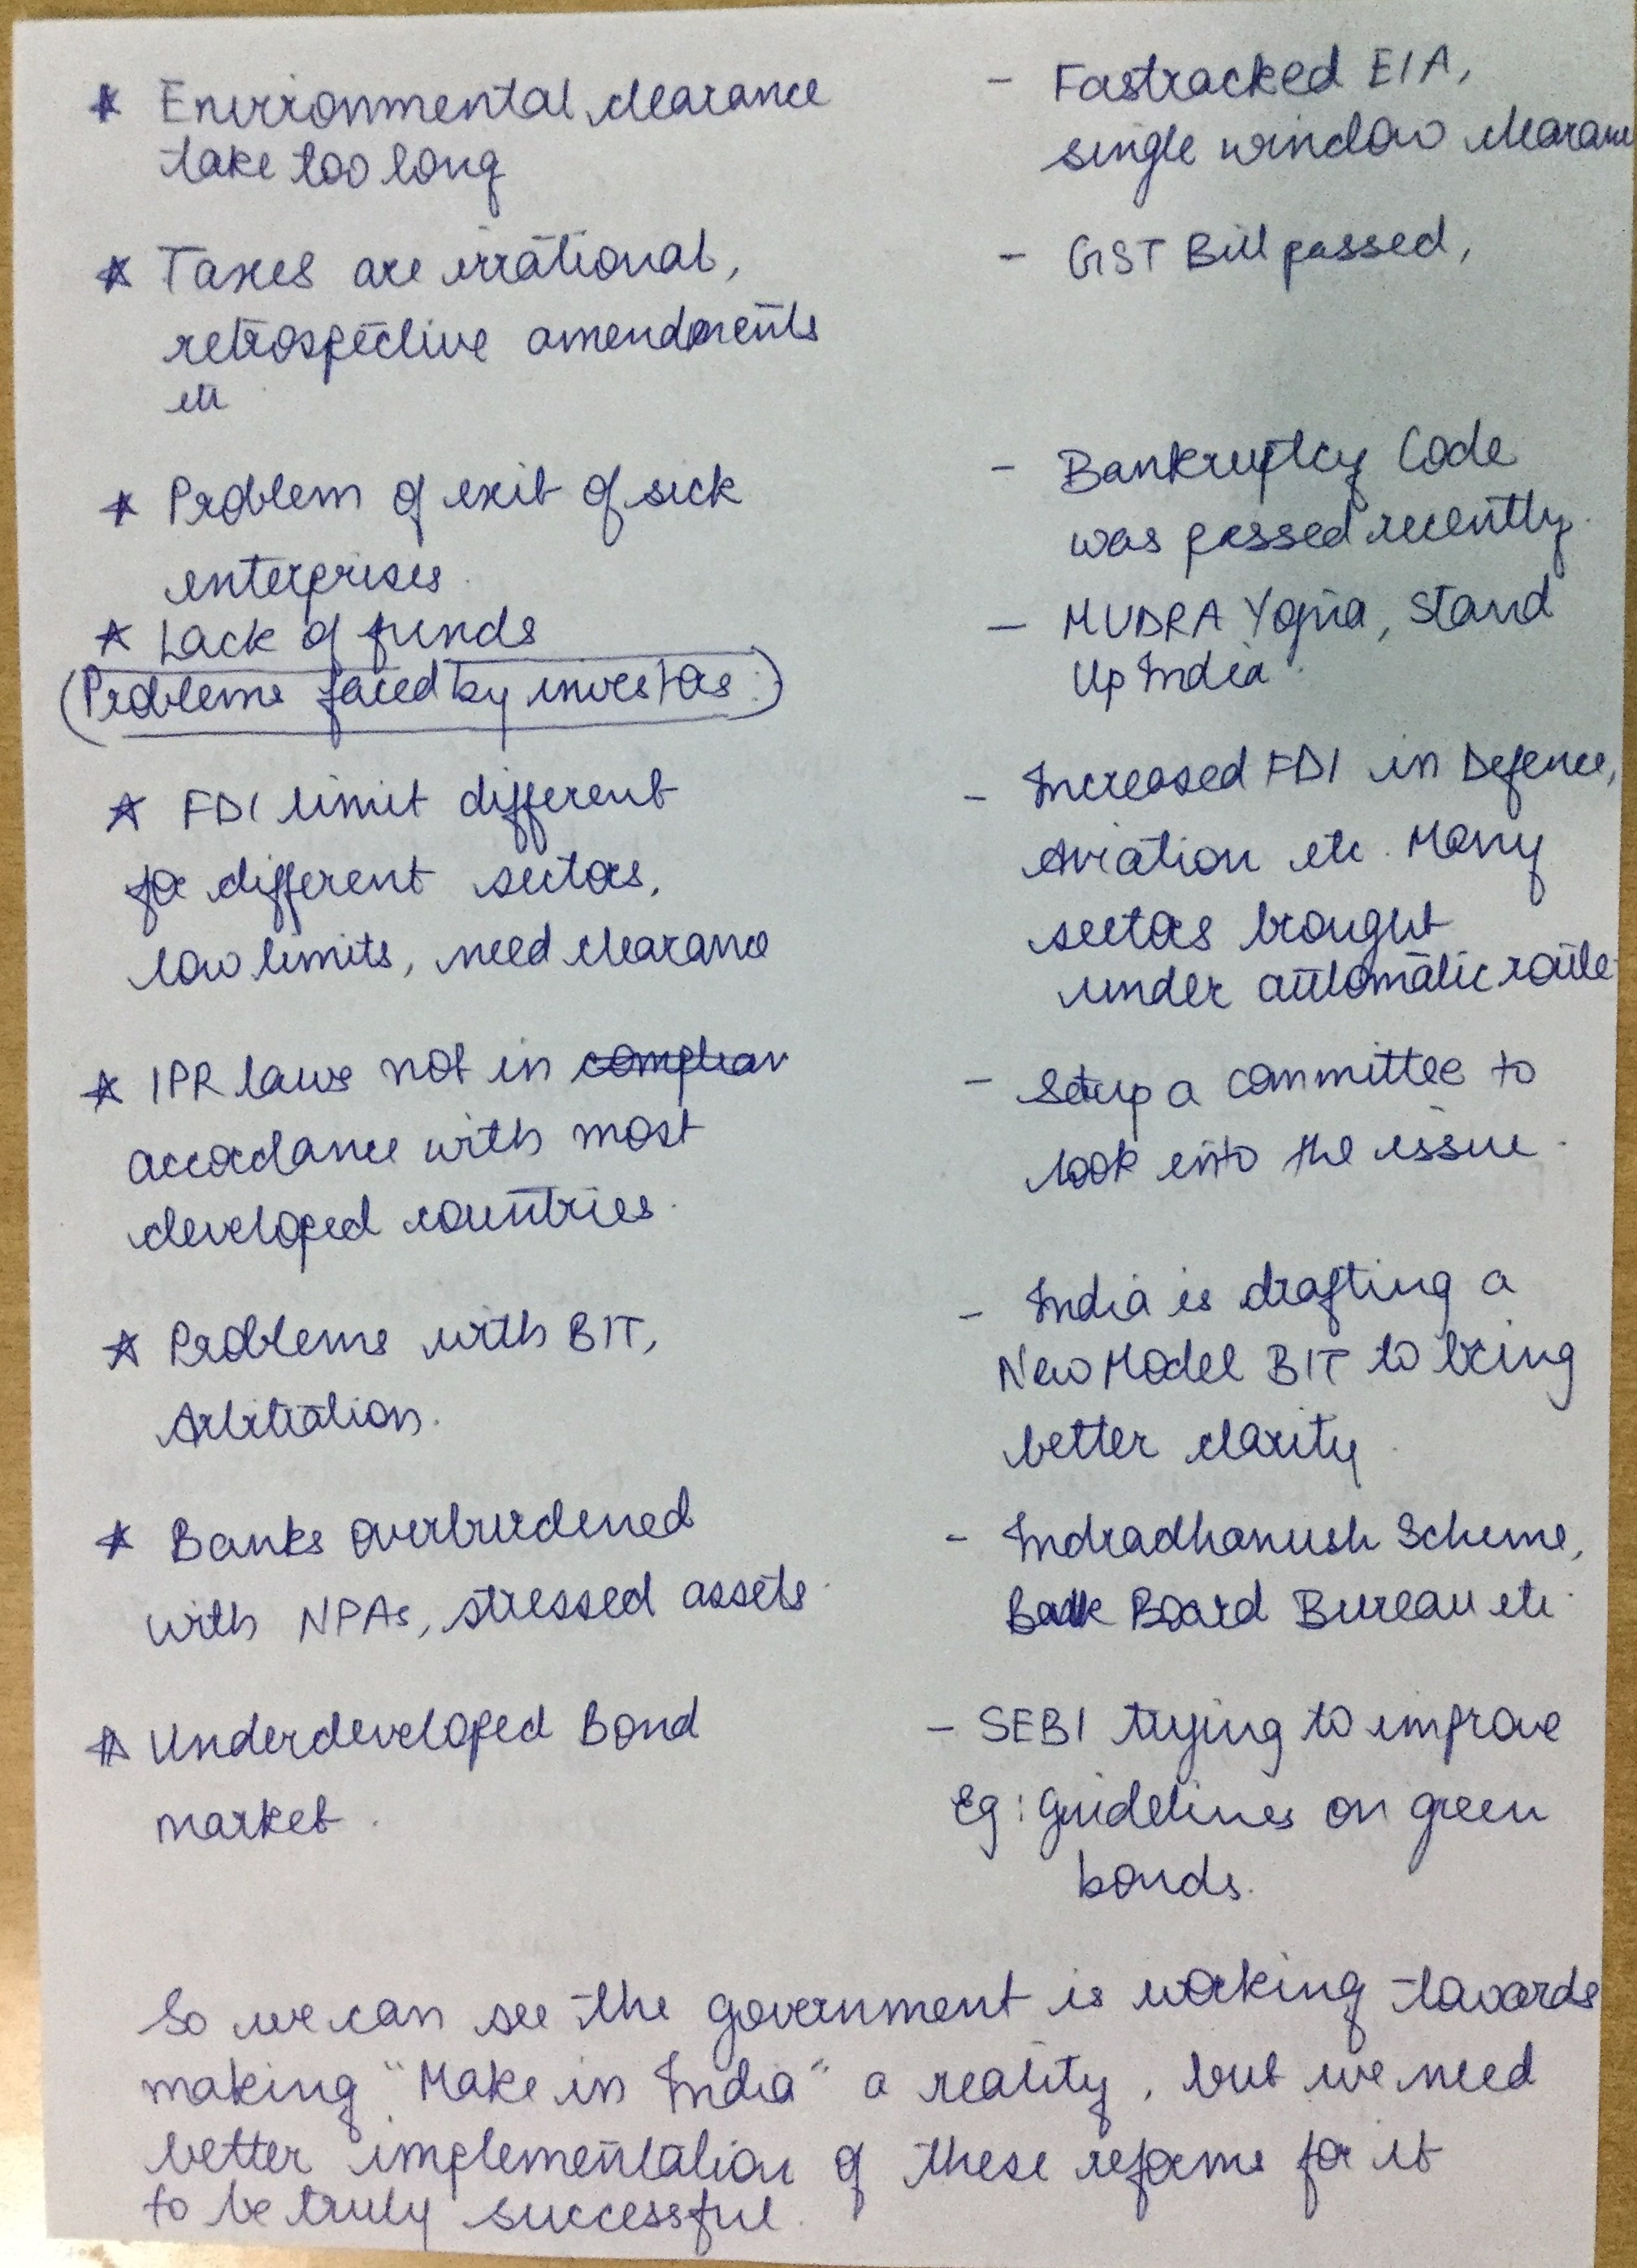 ★ Environmental clearance
take too long
- Fastracked EIA,
single window clearance
★ Taxes are irrational,
retrospective amendments
etc
- GST Bill passed,
★ Problem of exit of sick
enterprises.
- Bankruptcy Code
was passed recently.
★ Lack of funds
- MUDRA Yojna, Stand
Up India.
(Problems faced by investors:)
★ FDI limit different
for different sectors,
low limits, need clearance
- Increased FDI in Defence,
Aviation etc. Many
sectors brought
under automatic route
★ IPR laws not in complian
accordance with most
developed countries.
- Setup a committee to
look into the issue.
★ Problems with BIT,
Arbitration.
- India is drafting a
New Model BIT to bring
better clarity.
★ Banks overburdened
with NPAs, stressed assets.
- Indradhanush Scheme,
Bank Board Bureau etc.
★ Underdeveloped Bond
market.
- SEBI trying to improve
Eg: Guidelines on green
bonds.
So we can see the government is working towards
making "Make in India" a reality, but we need
better implementation of these reforms for it
to be truly successful.